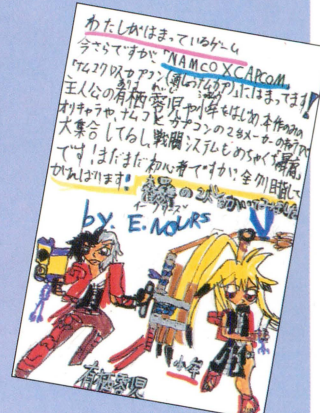 わたしがはまっているゲーム
今さらですが、"NAMCO X CAPCOM"
(ナムコクロスカプコン)(通しょうナムカプ)にはまってます!
主人公の有栖零児や小牟をはじめ、本作のみの
オリキャラや、ナムコとカプコンの2大メーカーのキャラが
大集合してるし、戦闘システムもめちゃくちゃ
です!まだまだ初心者ですが、全クリ目指して
がんばります!
by. E.NOURS
イーノアース
小牟
有栖零児